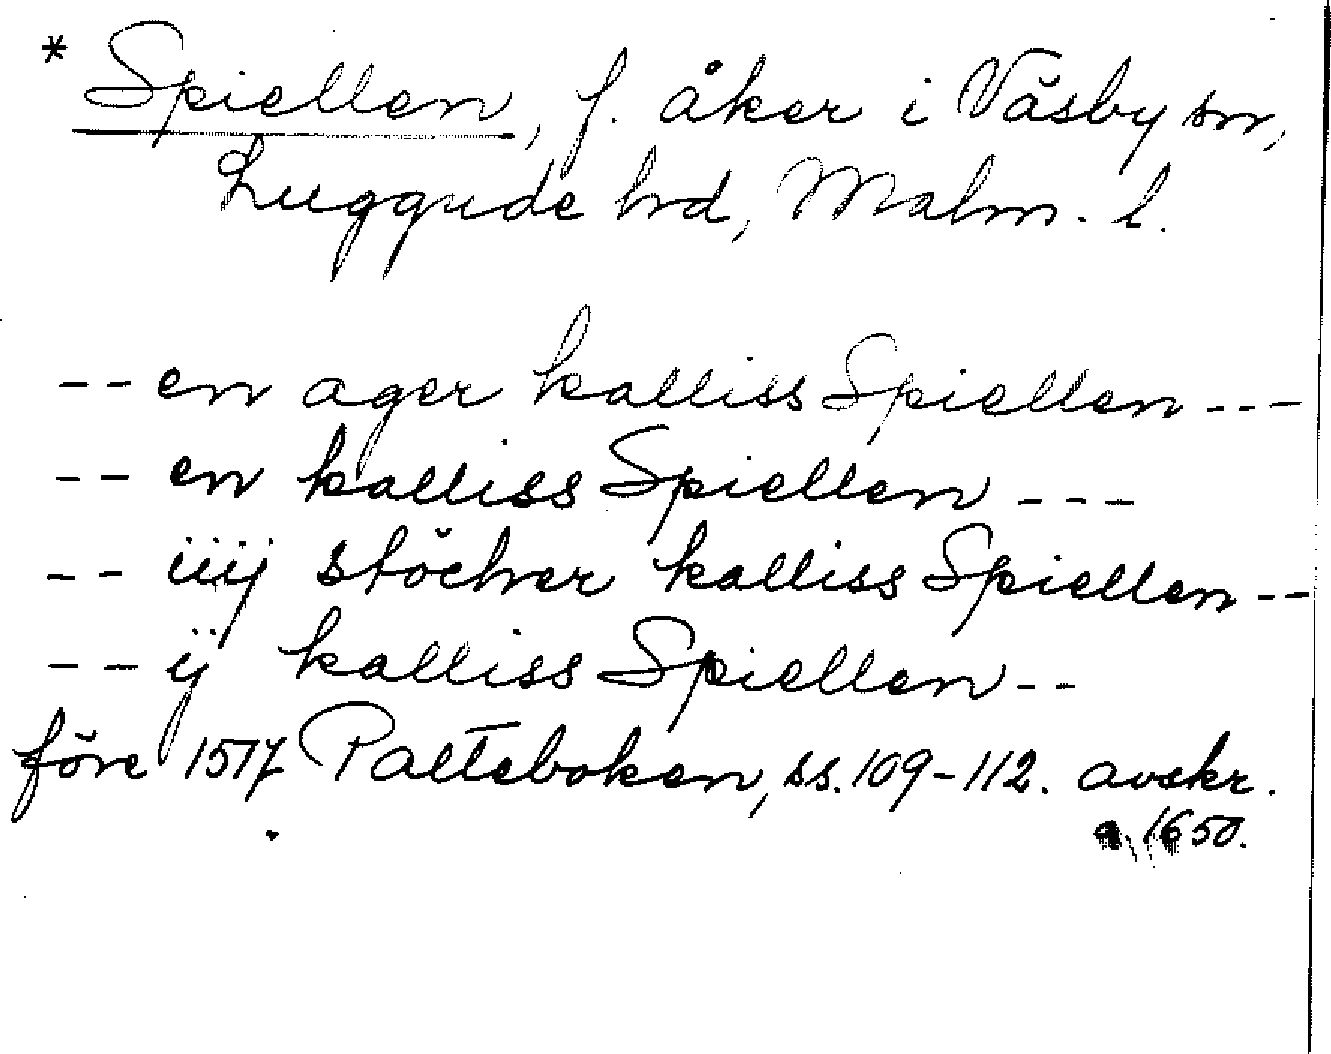 * Spiellen, f. åker i Väsby sn,
Luggude hd, Malm. l.
-- en ager kalliss Spiellen ---
-- en kalliss Spiellen ---
-- iiij stöcher kalliss Spiellen --
-- ij kalliss Spiellen --
före 1517 Palteboken, ss. 109-112. avskr.
1650.